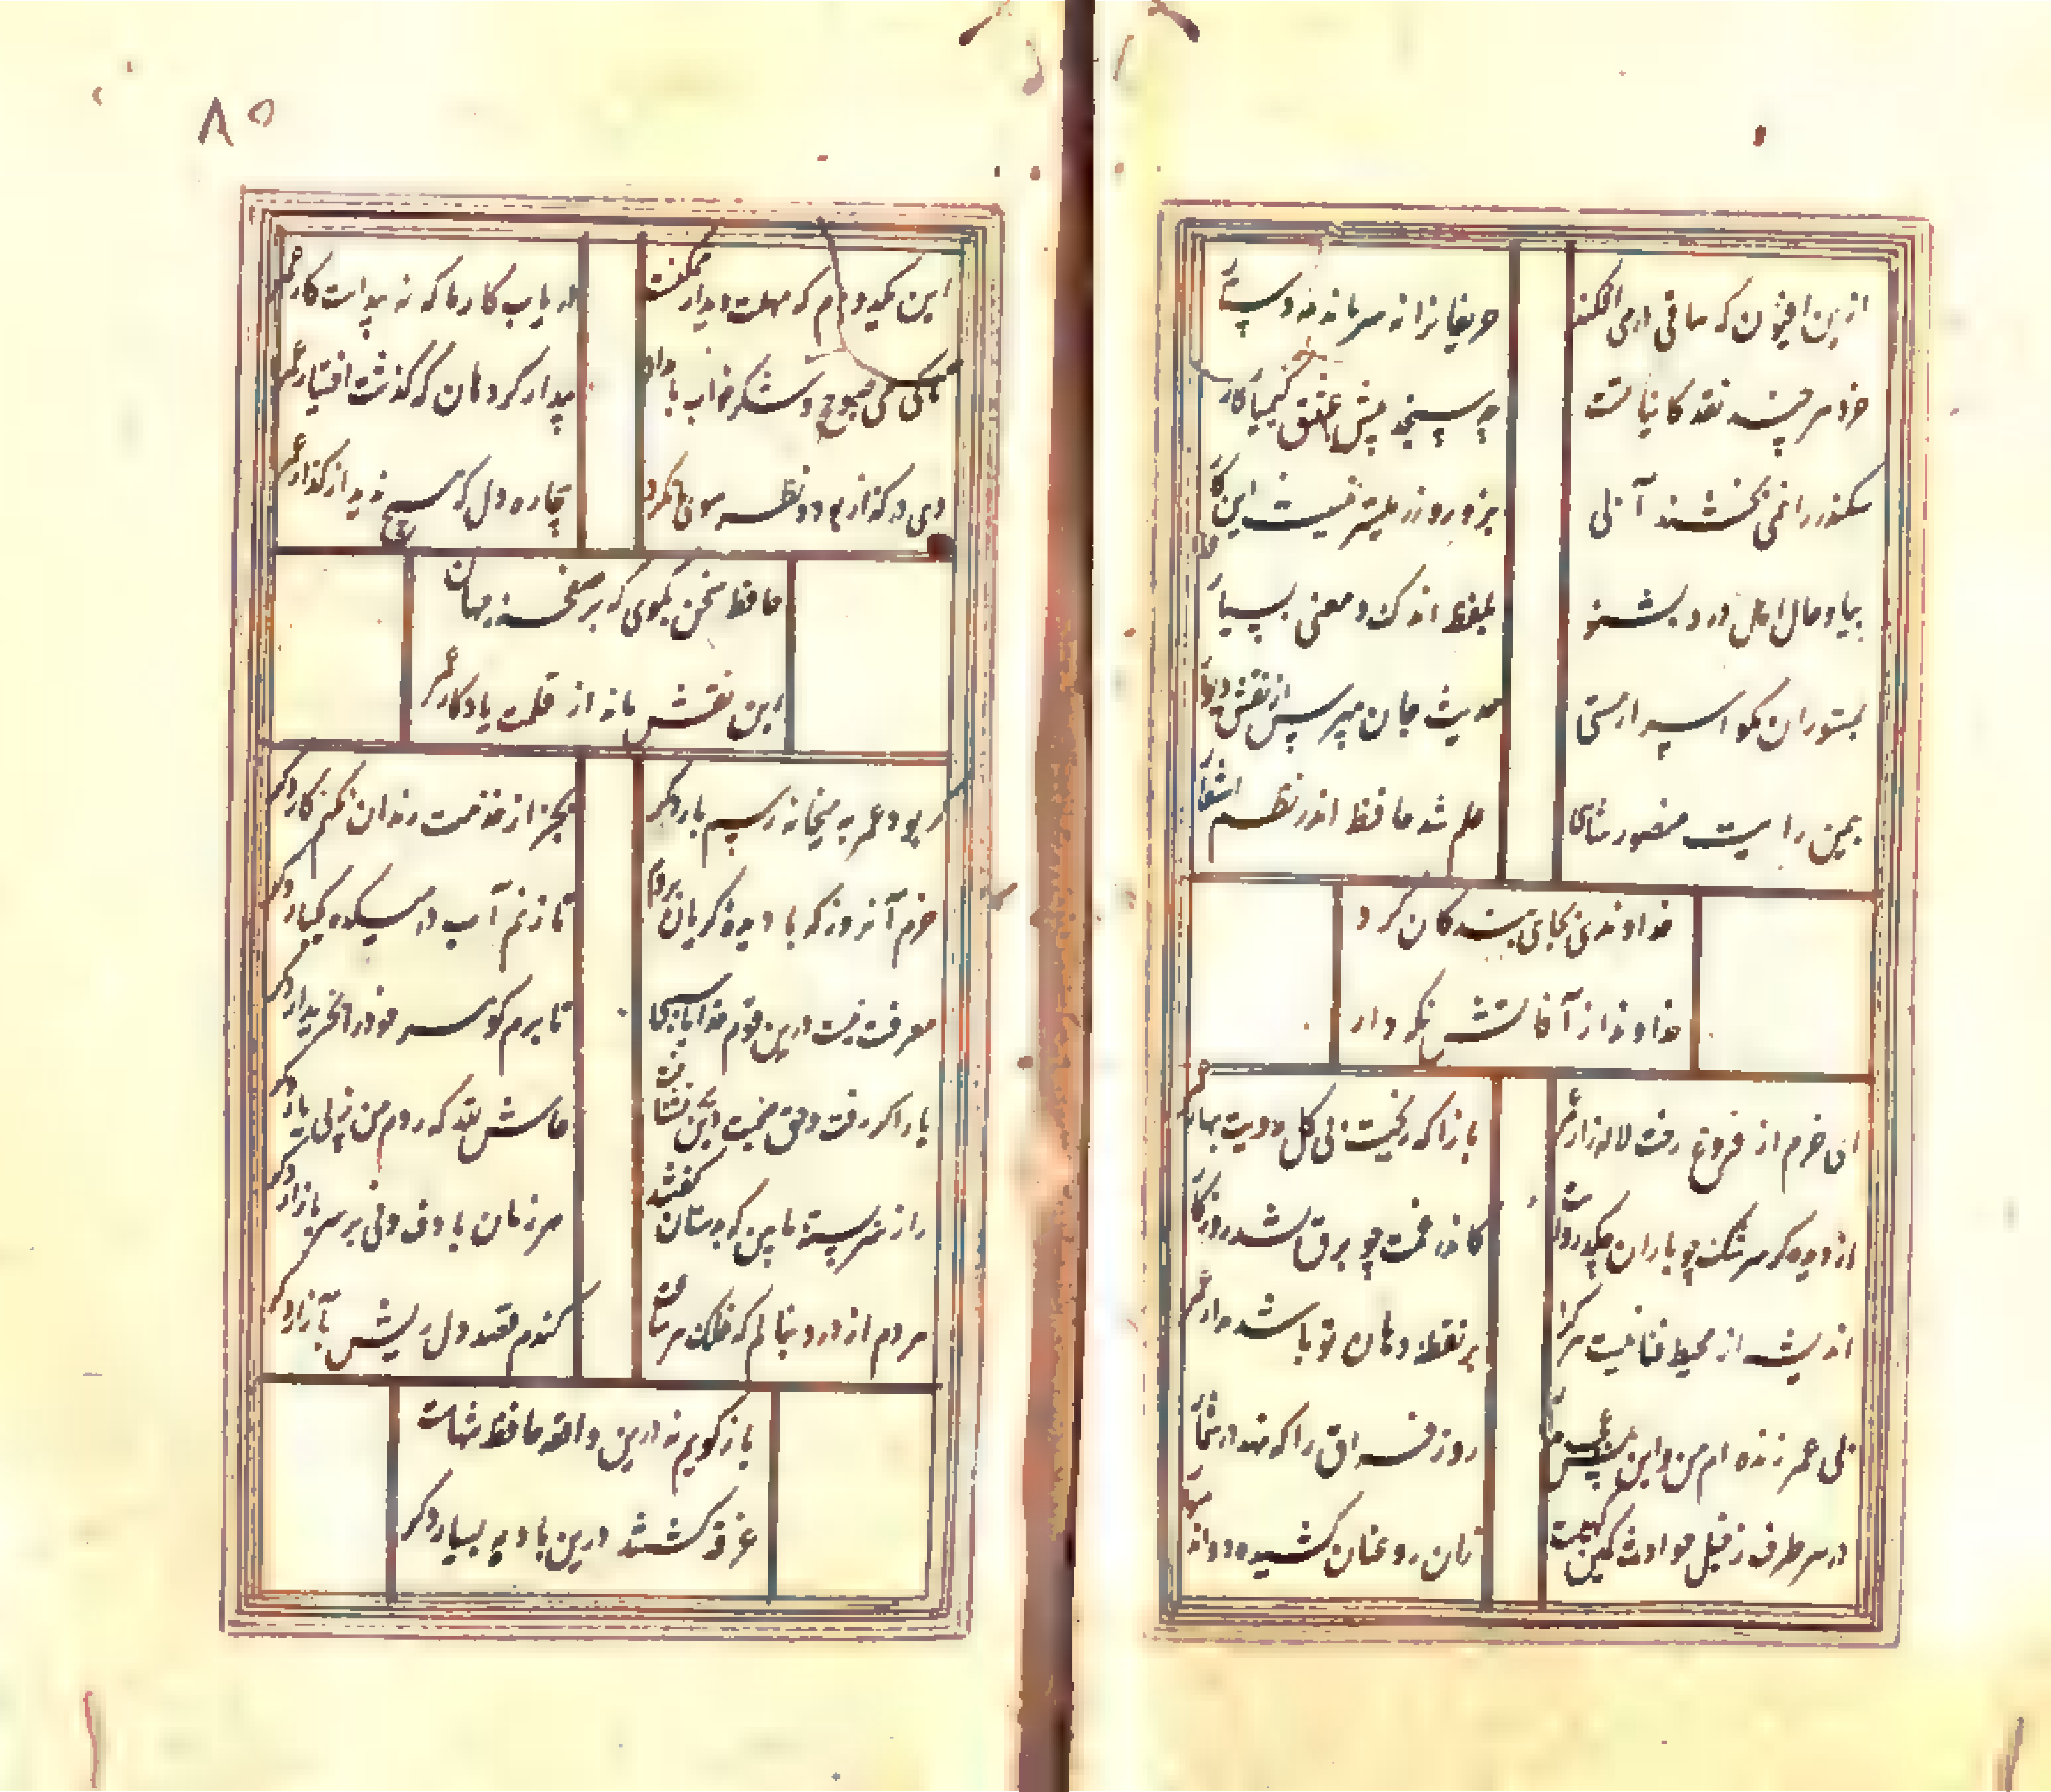 ازین افیون که ساقی در می افکند
حریفانرا نه سر ماند نه دستار
خرد هر چند نقد کاینات است
چه سنجد پیش عشق کیمیا کار
سکندر را نمی بخشند آبی
بزور و زر میسر نیست این کار
بیا و حال اهل درد بشنو
بلفظ اندک و معنی بسیار
بمستوران مگو اسرار مستی
حدیث جان مپرس از نقش دیوار
بیمن رایت منصور شاهی
علم شد حافظ اندر نظم اشعار
خداوندی بجای بندگان کرد
خداوندا ز آفاتش نگه دار
ای خرم از فروغ رخت لاله زار عمر
بازآ که ریخت بی گل رویت بهار عمر
از دیده گر سرشک چو باران چکد رواست
کاندر غمت چو برق بشد روزگار
اندیشه از محیط فنا نیست هر کرا
بر نقطه دهان تو باشد مدار عمر
بی عمر زنده ام من و این بس عجب مدار
روز فراق را که نهد در شمار
در هر طرف ز خیل حوادث کمین گهیست
زان رو عنان کشیده دواند سوار
۸۵
این یکدو دم که مهلت دیدار ممکنست
دریاب کار ما که نه پیداست کار عمر
تا کی می صبوح و شکر خواب بامداد
بیدار گرد هان که گذشت اختیار عمر
دی در گذار بود و نظر سوی ما نکرد
بیچاره دل که هیچ ندید از گذار عمر
حافظ سخن بگوی که بر صفحه جهان
این نقش ماند از قلمت یادگار عمر
گر بود عمر به میخانه رسم بار دگر
بجز از خدمت رندان نکنم کار دگر
خرم آنروز که با دیده گریان بروم
تا زنم آب در میکده یکبار دگر
معرفت نیست درین قوم خدایا سببی
تا برم گوهر خود را بخریدار دگر
یار اگر رفت و حق صحبت دیرین نشناخت
حاش لله که روم من ز پی یار دگر
راز سربسته ما بین که بدستان گفتند
هر زمان با دف و نی بر سر بازار دگر
هر دم از درد بنالم که فلک هر ساعت
کندم قصد دل ریش بآزار دگر
باز گویم نه درین واقعه حافظ تنهاست
غرقه گشتند درین بادیه بسیار دگر